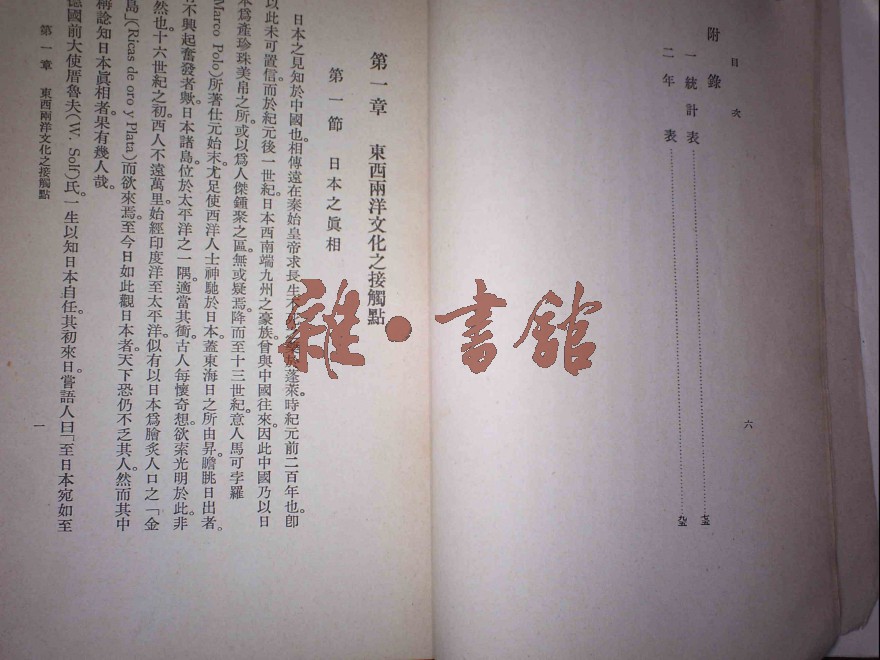 目次
六
附錄
一 統計表
二 年表
第一章 東西兩洋文化之接觸點
第一節 日本之眞相
日本之見知於中國也。相傳遠在秦始皇帝求長生於蓬萊。時紀元前二百年也。卽
以此未可置信。而於紀元後一世紀日本西南端九州之豪族。曾與中國往來。因此中國乃以日
本爲產珍珠美帛之所。或以爲人傑鍾聚之區。無或疑焉。降而至十三世紀。意人馬可孛羅
Marco Polo)所著仕元始末。尤足使西洋人士神馳於日本。蓋東海日之所由昇。瞻眺日出者。
不興起奮發者歟。日本諸島位於太平洋之一隅。適當其衝。古人每懷奇想。欲索光明於此。非
然也。十六世紀之初。西人不遠萬里。始經印度洋至太平洋。似有以日本爲膾炙人口之「金
島」(Ricas de oro y Plata)而欲來焉。至今日如此觀日本者。天下恐仍不乏其人。然而其中
稱諗知日本眞相者。果有幾人哉。
德國前大使厝魯夫(W. Solf)氏一生以知日本自任。其初來日。嘗語人曰。「至日本宛如至
第一章 東西兩洋文化之接觸點
一
雜·書館